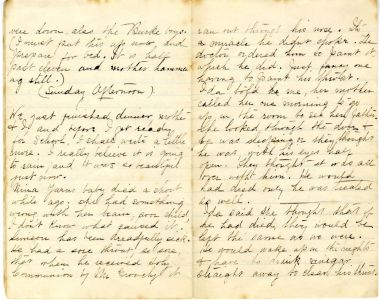 were down, also the Burke boys.
(I must put this up now, and
prepare for bed. It is half
past eleven and mother hammer
ing still.)
(Sunday Afternoon)
We just finished dinner, mother
& I and before I get ready
for School, I shall write a little
more. I really believe it is going
to rain and it was so beautiful
just now.
Nina baby died a short
while ago. She had something
wrong with her brain, poor child.
I don't know what caused it.
Simeon has been dreadfully sick.
He had a sore throat, so sore,
that when he received Holy
Communion by the it
ran out through his nose. It's
a miracle he didn't choke. The
doctor ordered him to paint it,
which he did. Just fancy one
having to paint his throat.
Ida told me, her mother
called her one morning to go
up in the room to see her father.
She looked through the door &
he was sleeping she thought
he was, with his eyes half
open. They thought it was all
over with him. He would
had died only he was treated
so well.
Ida said she thought that if
he had died, they would be
left the same as we were.
He would wake up in the night
& have to drink vinegar
straight away to clean his throat.